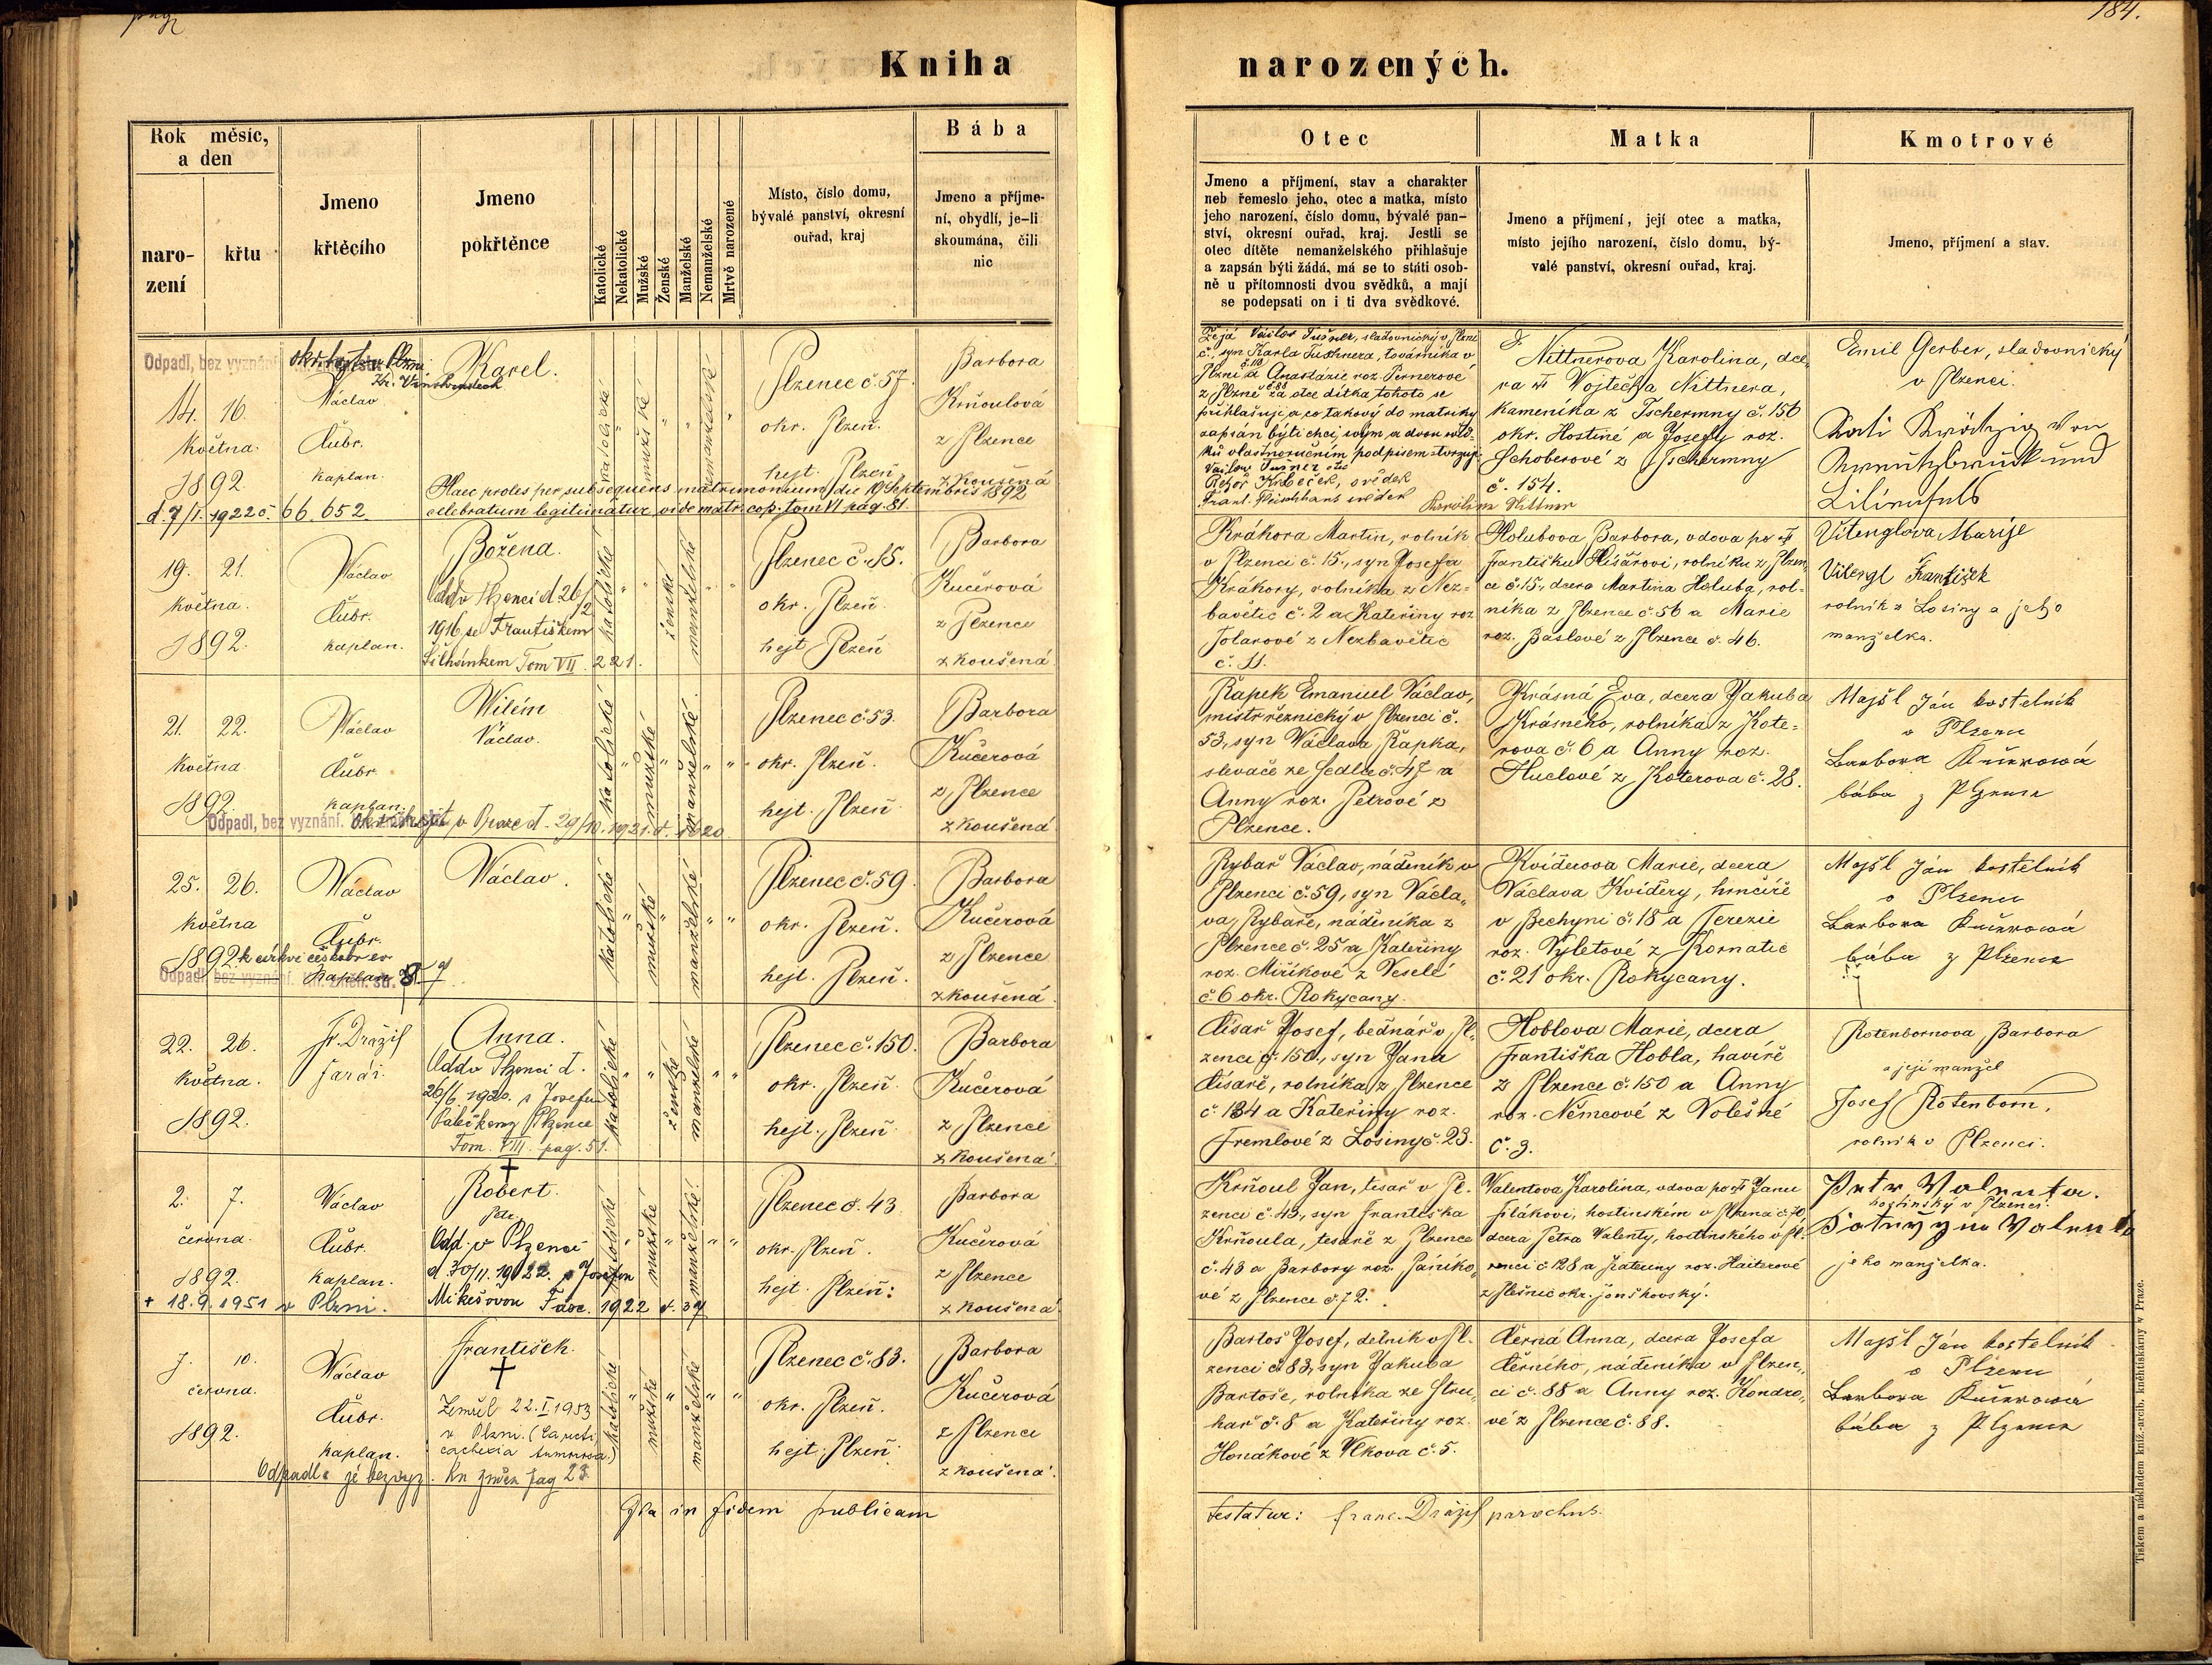 184.
Kniha narozených.
Rok měsíc,
a den
naro-
zení
křtu
Jmeno
křtěcího
Jmeno
pokřtěnce
Katolické
Nekatolické
Mužské
Ženské
Manželské
Nemanželské
Mrtvě narozené
Místo, číslo domu,
bývalé panství, okresní
ouřad, kraj
Bába
Jmeno a příjme-
ní, obydlí, je-li
skoumána, čili
nic
Otec
Jmeno a příjmení, stav a charakter
neb řemeslo jeho, otec a matka, místo
jeho narození, číslo domu, bývalé pan-
ství, okresní ouřad, kraj. Jestli se
otec dítěte nemanželského přihlašuje
a zapsán býti žádá, má se to státi osob-
ně u přítomnosti dvou svědků, a mají
se podepsati on i ti dva svědkové.
Matka
Jmeno a příjmení, její otec a matka,
místo jejího narození, číslo domu, bý-
valé panství, okresní ouřad, kraj.
Kmotrové
Jmeno, příjmení a stav.
Odpadl, bez vyznání
14. 16.
května
1892.
d. 7/I. 1922 č. 66.652
Václav
Čubr.
kaplan.
Karel.
Haec proles per subsequens matrimonium die 19 Septembris 1892
celebratum legitimatur vide matr. cop. tom VI pag. 81.
katolické
mužské
nemanželské
Plzenec č. 57.
okr. Plzeň.
hejt. Plzeň
Barbora
Krňoulova
z Plzence
zkoušená
Že já Václav Tušner, sladovnický v Plzni
č., syn Karla Tuschnera, továrníka v
Plzni č. a Anastázie roz. Pernerové
z Plzně za otce dítka tohoto se
přihlašuji a co takový do matriky
zapsán býti chci, svým a dvou svěd-
ků vlastnoručním podpisem stvrzuji
Václav Tušner otec
svědek
svědek
Karolina Nittner
Nittnerova Karolina, dce-
ra Vojtěcha Nittnera,
kameníka z Tschermny č. 156
okr. Hostiné a Josefy roz.
Schoberové z Tschermny
č. 154.
Emil Gerber, sladovnický
v Plzenci.
19. 21.
května.
1892.
Václav
Čubr.
kaplan.
Božena.
Odd. v Plzenci d. 26/2
1916 se Františkem
Tom VII. 221.
katolické
ženské
manželské
Plzenec č. 15.
okr. Plzeň
hejt Plzeň
Barbora
Kučerová
z Plzence
zkoušená
Krákora Martin, rolník
v Plzenci č. 15., syn Josefa
Krákory, rolníka z Nez-
bavětic č. 2 a Kateřiny roz
Tolarové z Nezbavětic
č. 11.
Holubova Barbora, vdova po
Františku Hlišárovi, rolníku z Plzen-
ce č. 15, dcera Martina Holuba, rol-
níka z Plzence č. 56 a Marie
roz. Baslové z Plzence č. 46.
Vitenglova Marije
Vitengl František
rolník z Losiny a jeho
manželka.
21. 22.
května
1892.
Václav
Čubr
kaplan.
Vilém
Václav.
Odpadl, bez vyznání.
v Praze d. 29/10. 1921
katolické
mužské
manželské
Plzenec č. 53.
okr. Plzeň.
hejt. Plzeň
Barbora
Kučerová
z Plzence
zkoušená
Řapek Emanuel Václav,
mistr řeznický v Plzenci č.
53, syn Václava Řapka,
slevače ze Sedlce č. 47 a
Anny roz. Petrové z
Plzence.
Krásná Eva, dcera Jakuba
Krásného, rolníka z Kote-
rova č. 6 a Anny roz.
Huclové z Koterova č. 28.
Majsl Ján kostelník
v Plzenci
Barbora Kučerowá
bába z Plzence
25. 26.
května
1892
Václav
Čubr.
kaplan
Václav.
k církvi českobr. ev
Odpadl, bez vyznání.
katolické
mužské
manželské
Plzenec č. 59.
okr. Plzeň.
hejt. Plzeň.
Barbora
Kučerová
z Plzence
zkoušená
Rybař Václav, nádeník v
Plzenci č. 59, syn Václa-
va, Rybaře, nádeníka z
Plzence č. 25 a Kateřiny
roz. Miříkové z Veselé
č. 6 okr. Rokycany.
Kviderova Marie, dcera
Václava Kvidery, hrnčíře
v Bechyni č. 18 a Terezie
roz. Výletové z Kornatic
č. 21 okr. Rokycany.
Majsl Ján kostelník
v Plzenci
Barbora Kučerowá
bába z Plzence
22. 26.
května.
1892.
Fr. Drážil
farář.
Anna.
Odd. v Plzenci d.
26/6. 1920. s Josefem
Páleckem z Plzence
Tom. VIII. pag. 51.
katolické
ženské
manželské
Plzenec č. 150.
okr. Plzeň.
hejt. Plzeň
Barbora
Kučerová
z Plzence
zkoušená.
Císař Josef, bednář v Pl-
zenci č. 150., syn Jana
Císaře, rolníka z Plzence
č. 134 a Kateřiny roz.
Fremlové z Losiny č. 23.
Hoblova Marie, dcera
Františka Hobla, havíře
z Plzence č. 150 a Anny
roz. Němcové z Volešné
č. 3.
Rotenbornova Barbora
a její manžel
Josef Rotenborn,
rolník v Plzenci.
2. 7.
června.
1892.
+ 18.9.1951 v Plzni.
Václav
Čubr.
kaplan.
Robert
Petr
Odd. v Plzenci
d. 30/11. 1922. s Josefou
Mikešovou Fasc. 1922 č. 39
katolické
mužské
manželské
Plzenec č. 43.
okr. Plzeň.
hejt. Plzeň.
Barbora
Kučerová
z Plzence
zkoušená
Krňoul Jan, tesař v Pl-
zenci č. 43., syn Františka
Krňoula, tesaře z Plzence
č. 43 a Barbory roz. Paníko-
vé z Plzence č. 72.
Valentova Karolina, vdova po Janu
Filákovi, hostinském v Plzenci č. 70,
dcera Petra Valenty, hostinského v Pl-
zenci č. 128 a Kateřiny roz. Haiterové
z Plešnic okr. jonškovský.
Petr Valenta.
hostinský v Plzenci.
jeho manželka.
7. 10.
června.
1892.
Václav
Čubr.
kaplan.
František.
Zemřel 22.I.1953
v Plzni.
Odpadl a je bez vyz. Kn změn pag 23.
katolické
mužské
manželské
Plzenec č. 83.
okr. Plzeň.
hejt. Plzeň.
Barbora
Kučerová
z Plzence
zkoušená.
Bartoš Josef, dělník v Pl-
zenci č. 83, syn Jakuba
Bartoše, rolníka ze Štru-
hař č. 8 a Kateřiny roz.
Honákové z Vlkova č. 5.
Černá Anna, dcera Josefa
Černího, nádeníka v Plzen-
ci č. 88 a Anny roz. Kondro-
vé z Plzence č. 88.
Majsl Ján kostelník
v Plzenci
Barbora Kučerowá
bába z Plzence
Ita in fidem publicam testatur: Franc. Drážil parochus.
Tiskem a nákladem kníž.-arcib. kněhtiskárny v Praze.